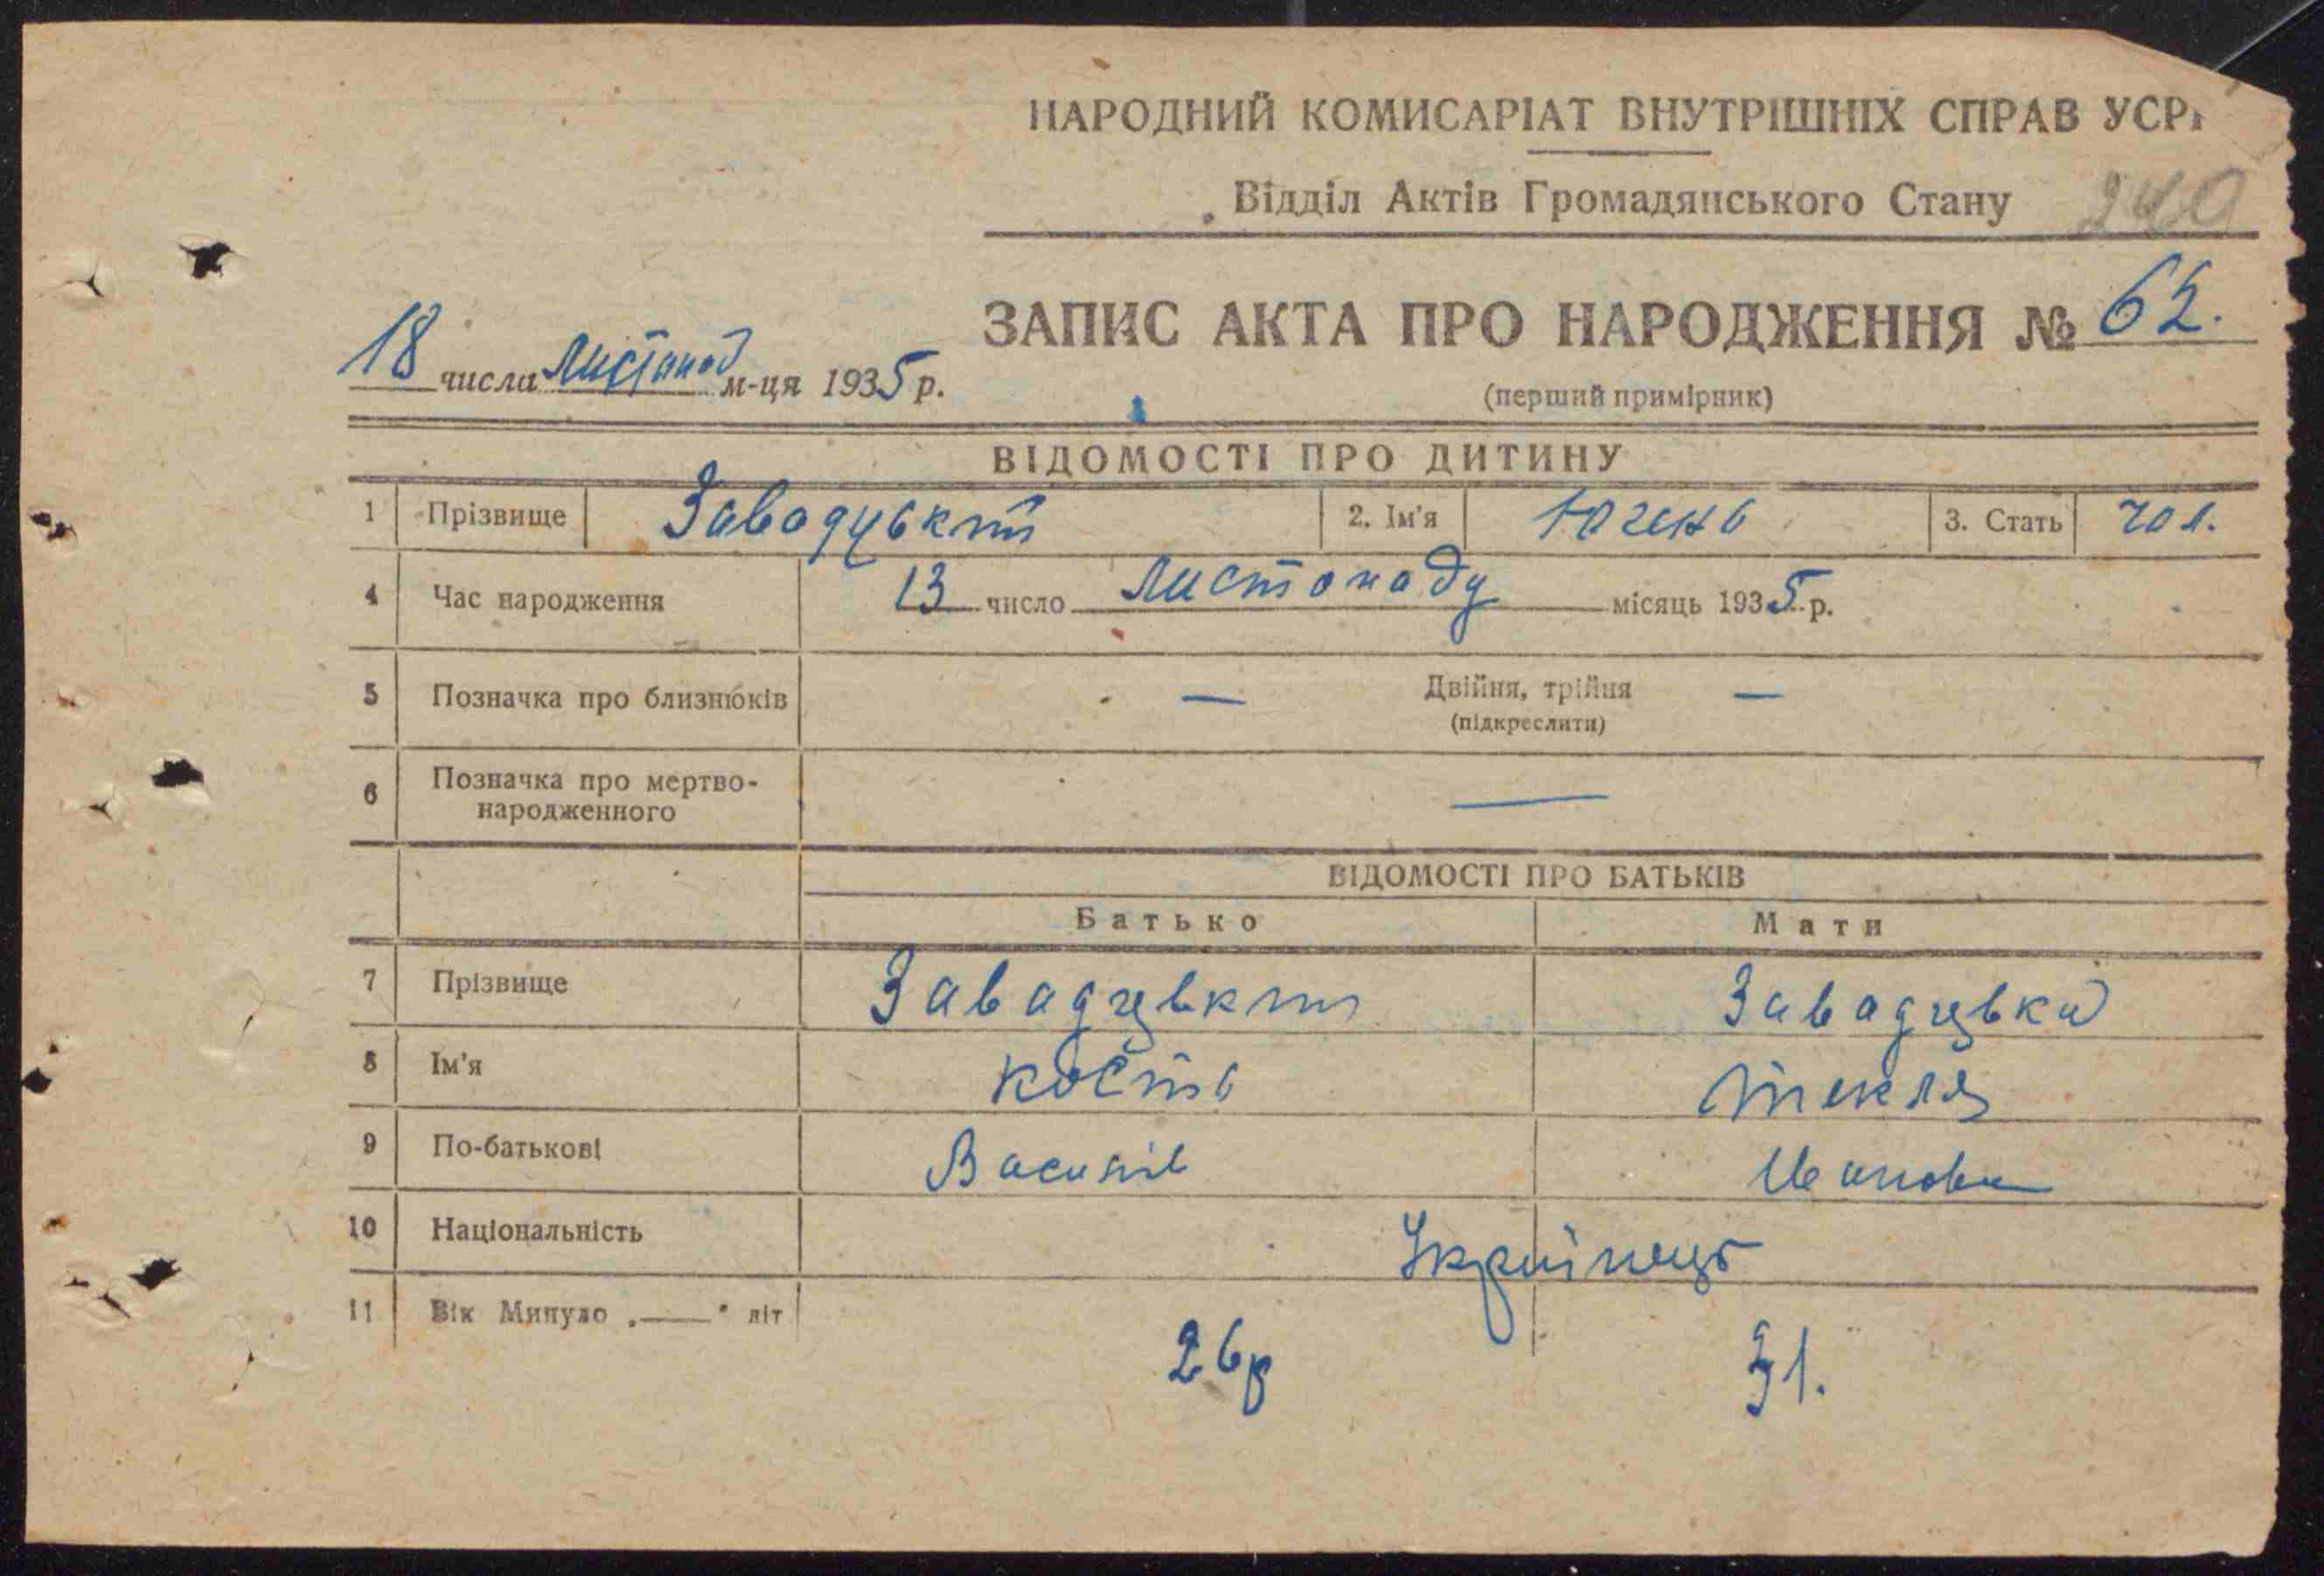 НАРОДНИЙ КОМИСАРІАТ ВНУТРІШНІХ СПРАВ УСР
Відділ Актів Громадянського Стану 240
ЗАПИС АКТА ПРО НАРОДЖЕННЯ № 62.
18 числа листопад м-ця 1935 р.
(перший примірник)
ВІДОМОСТІ ПРО ДИТИНУ
1 Прізвище 2. Ім'я Югень 3. Стать чол.
4 Час народження 13 число листопаду місяць 1935 р.
5 Позначка про близнюків — Двійня, трійня —
(підкреслити)
6 Позначка про мертво-
народженного —
ВІДОМОСТІ ПРО БАТЬКІВ
Батько Мати
7 Прізвище
8 Ім'я Кость Текля
9 По-батькові Василів Іванова
10 Національність Українець
11 Вік Минуло „——" літ
26р 31.